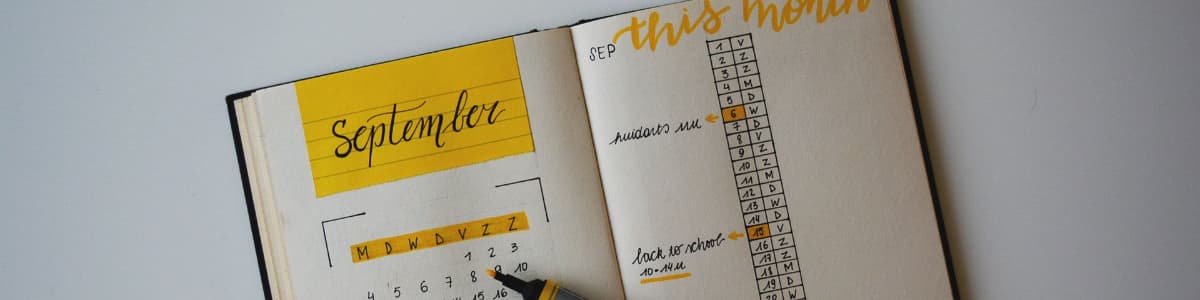 September
M D W D V Z Z
1 2 3
4 5 6 7 8 9 10
15 16
this month
SEP
1 V
2 Z
3 Z
4 M
5 D
6 W
7 D
8 V
9 Z
10 Z
11 M
12 D
13 W
14 D
15 V
16 Z
17 Z
18 M
19 D
20 W
back to school
10-14u